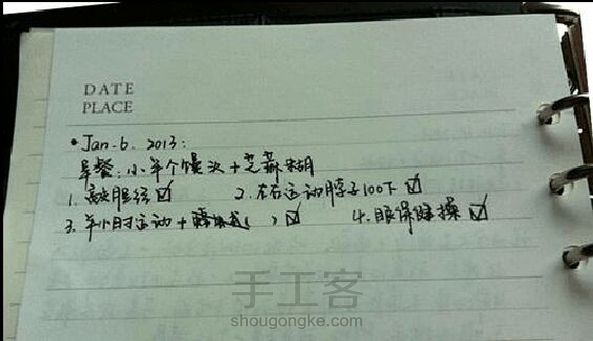 DATE
PLACE
• Jan. 6. 2013:
早餐: 小半个馒头 + 芝麻糊
1. 敲胆经 ☑ 2. 左右运动脖子100下 ☑
3. 半小时运动 + ( ) ☑ 4. 眼保健操 ☑
手工客
shougongke.com